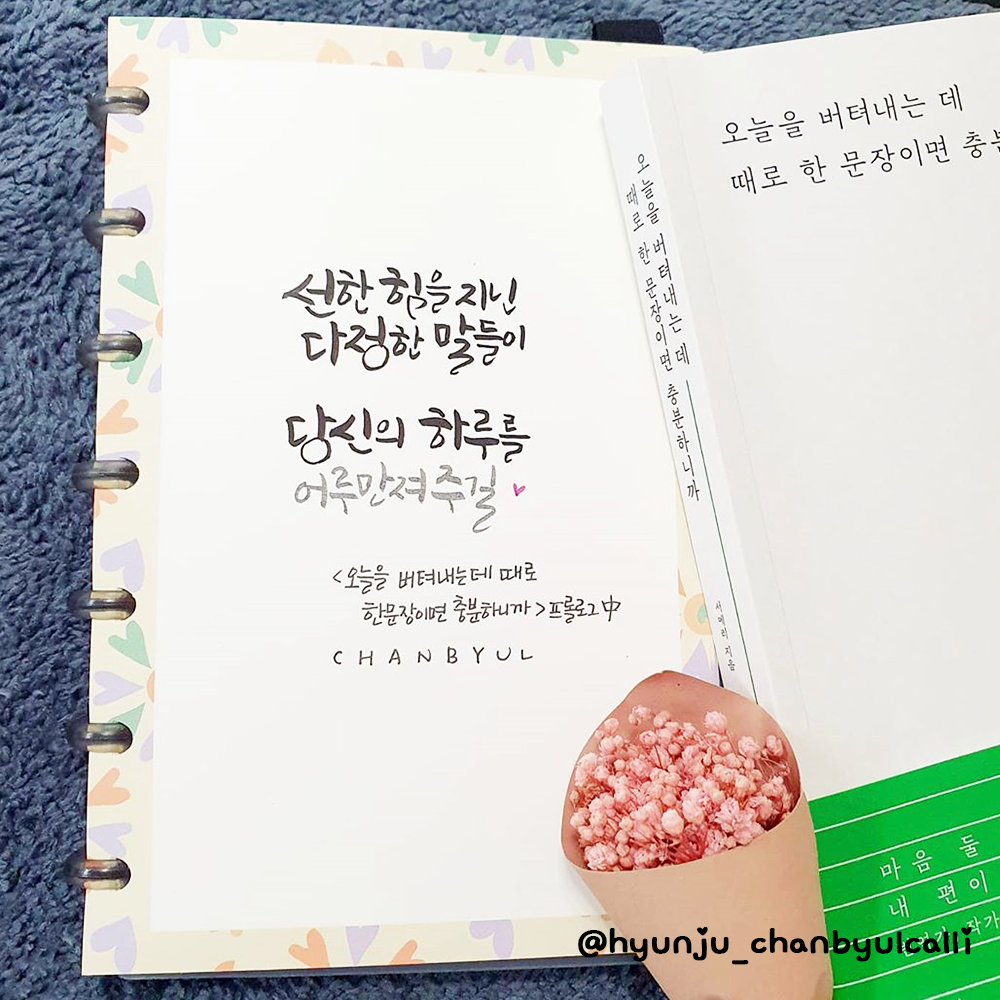 선한 힘을 지닌
다정한 말들이
당신의 하루를
어루만져주길
<오늘을 버텨내는데 때로
한문장이면 충분하니까>프롤로그 中
CHANBYUL
오늘을 버텨내는 데
때로 한 문장이면 충분하니까
서메리 지음
오늘을 버텨내는 데
때로 한 문장이면 충분
마음 둘
내 편이
작가
@hyunju_chanbyulcalli